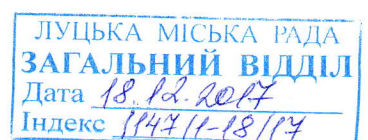 ЛУЦЬКА МІСЬКА РАДА
ЗАГАЛЬНИЙ ВІДДІЛ
Дата 18.12.2017
Індекс 1147/1-18/17